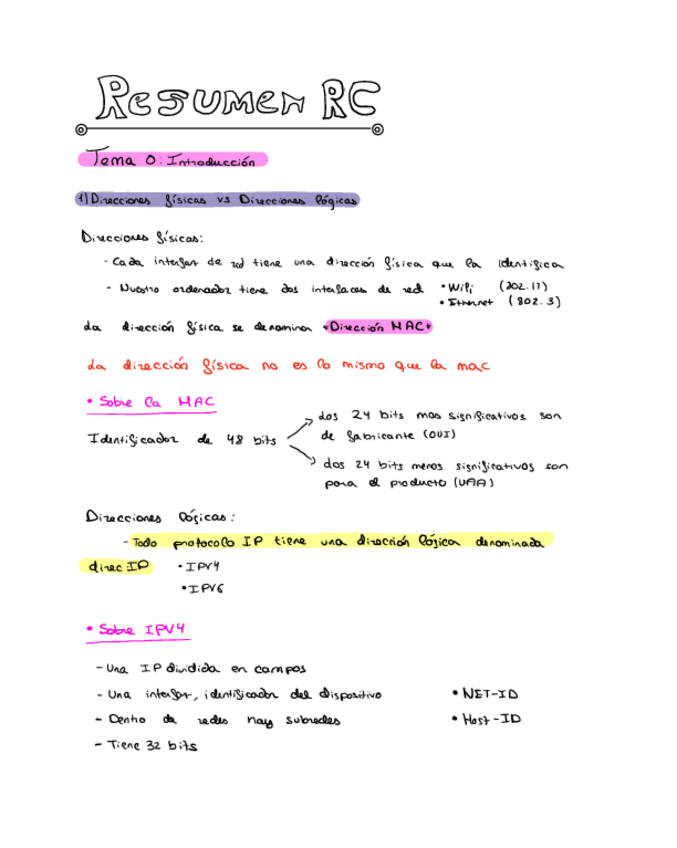 RESUMEN RC
Tema 0: Introducción
1) Direcciones físicas vs Direcciones lógicas
Direcciones físicas:
- Cada interfaz de red tiene una dirección física que la identifica
- Nuestro ordenador tiene dos interfaces de red • Wifi (202.11)
• Ethernet (802.3)
La dirección física se denomina *Dirección MAC*
La dirección física no es lo mismo que la mac
• Sobre la MAC
Los 24 bits mas significativos son
Identificador de 48 bits
de fabricante (OUI)
Los 24 bits menos significativos son
para el producto (UAA)
Direcciones lógicas:
- Todo protocolo IP tiene una dirección lógica denominada
direc IP • IPV4
• IPV6
• Sobre IPV4
- Una IP dividida en campos
- Una interfaz, identificador del dispositivo • NET-ID
- Dentro de redes hay subredes • Host-ID
- Tiene 32 bits